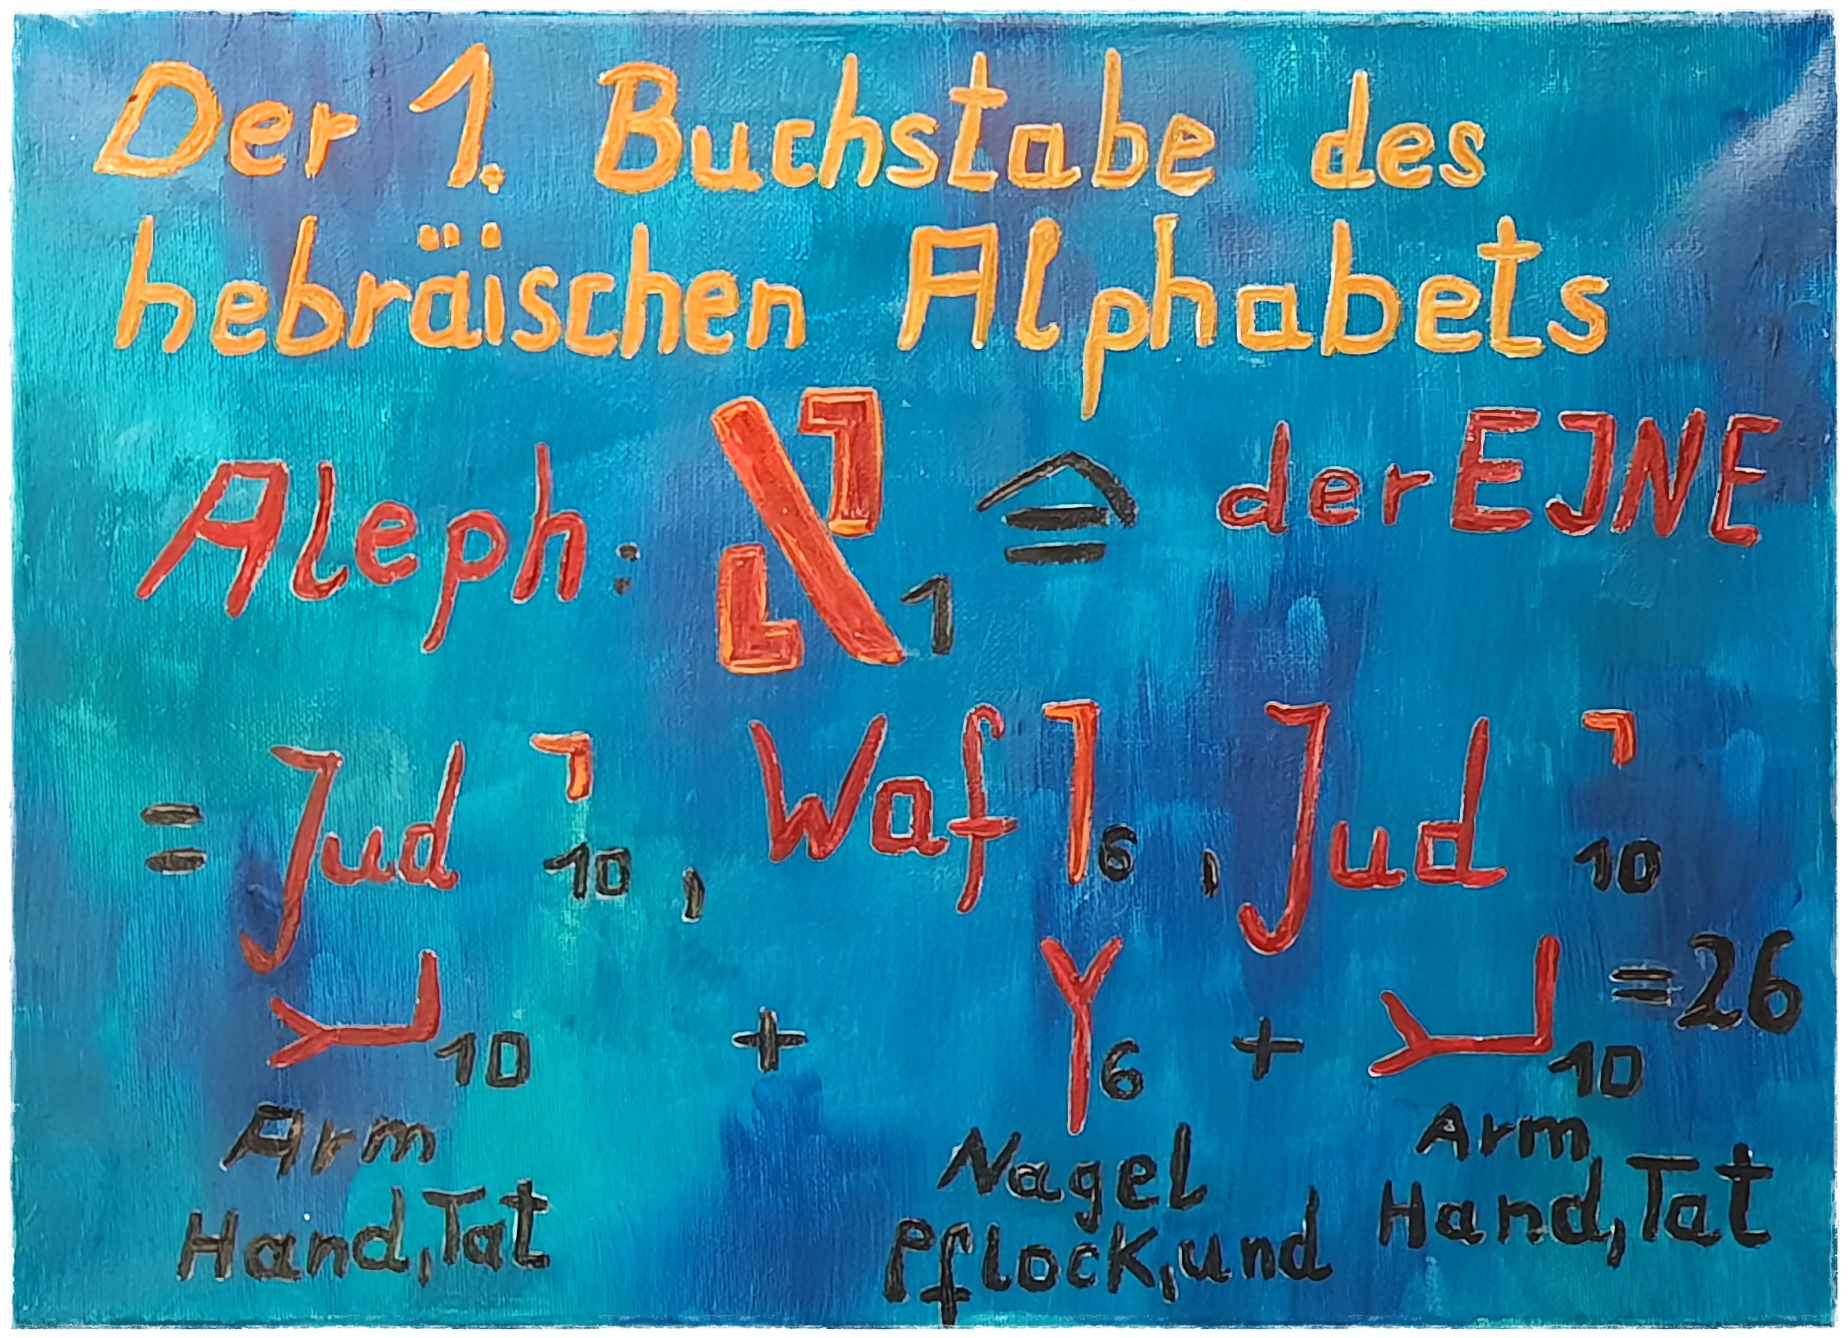 Der 1. Buchstabe des
hebräischen Alphabets
Aleph: א1 ≙ der EJNE
= Jud י10, Waf ו6, Jud י10
10 + Y6 + 10 = 26
Arm Nagel Arm
Hand, Tat Pflock, und Hand, Tat